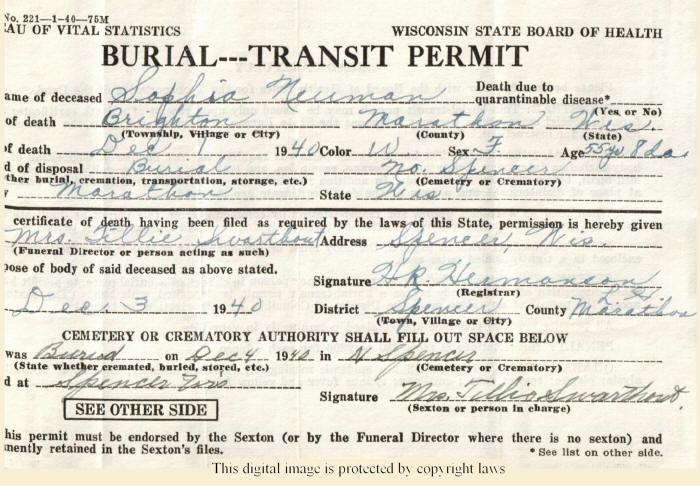 No. 221—1-40—75M
EAU OF VITAL STATISTICS WISCONSIN STATE BOARD OF HEALTH
BURIAL---TRANSIT PERMIT
ame of deceased Sophia Neuman Death due to quarantinable disease*
(Yes or No)
of death Brighton Marathon Wis.
(Township, Village or City) (County) (State)
of death Dec 1 1940 Color W Sex F Age 55 yr 8 da
d of disposal Burial No. Spencer
ther burial, cremation, transportation, storage, etc.) (Cemetery or Crematory)
y Marathon State Wis
certificate of death having been filed as required by the laws of this State, permission is hereby given
Mrs. Tillie Swarthout Address Spencer, Wis.
(Funeral Director or person acting as such)
pose of body of said deceased as above stated.
Signature H R Hermanson
(Registrar)
Dec. 3 1940 District Spencer County Marathon
(Town, Village or City)
CEMETERY OR CREMATORY AUTHORITY SHALL FILL OUT SPACE BELOW
was Buried on Dec 4 1940 in N Spencer
(State whether cremated, buried, stored, etc.) (Cemetery or Crematory)
d at Spencer Wis
Signature Mrs. Tillie Swarthout
(Sexton or person in charge)
SEE OTHER SIDE
his permit must be endorsed by the Sexton (or by the Funeral Director where there is no sexton) and
nently retained in the Sexton's files. * See list on other side.
This digital image is protected by copyright laws